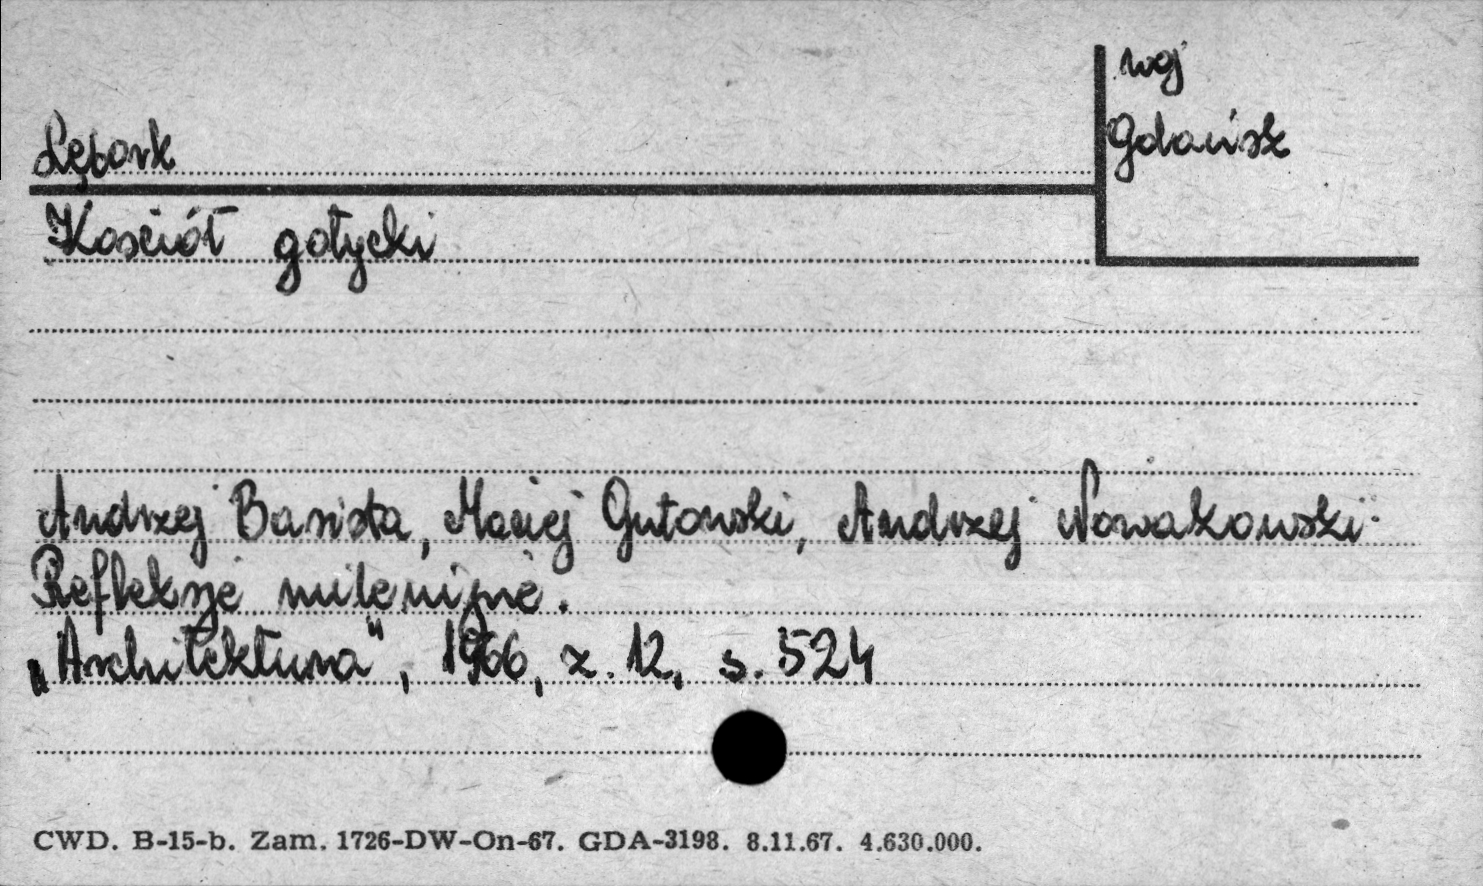 woj
Gdańsk
Lębork
Kościół gotycki
Andrzej Basista, Maciej Gutowski, Andrzej Nowakowski:
Refleksje milenijne.
„Architektura", 1966, z. 12, s. 524
CWD. B-15-b. Zam. 1726-DW-On-67. GDA-3198. 8.11.67. 4.630.000.